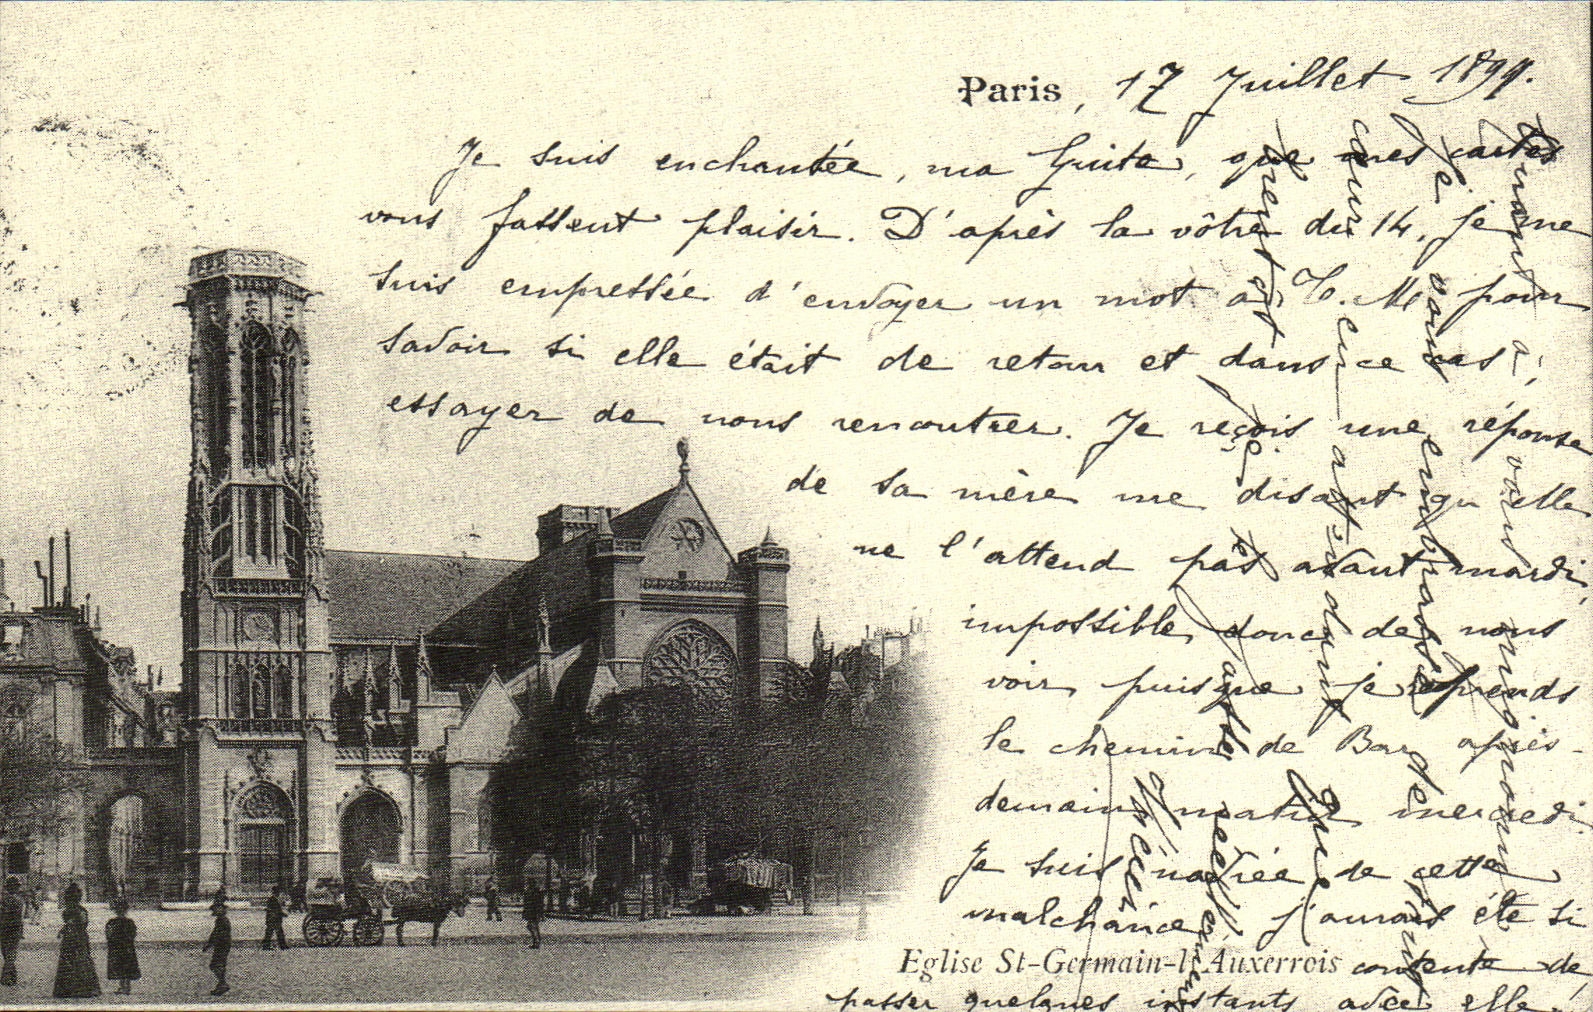 Paris, 17 Juillet 1899.
Je suis enchantée, ma Guite, que mes cartes
vous fassent plaisir. D'après la vôtre du 14, je me
suis empressée d'envoyer un mot à M. pour
savoir si elle était de retour et dans ce cas
essayer de nous rencontrer. Je reçois une réponse
de sa mère me disant qu'elle
ne l'attend pas avant mardi,
impossible donc de nous
voir, puisque je reprends
le chemin de Bar après-
demain matin mercredi.
Je suis navrée de cette
malchance, j'aurais été si
Eglise St-Germain-l'Auxerrois
contente de
passer quelques instants avec elle.
Quant à vous
Je vous embrasse de tout
cœur en attendant